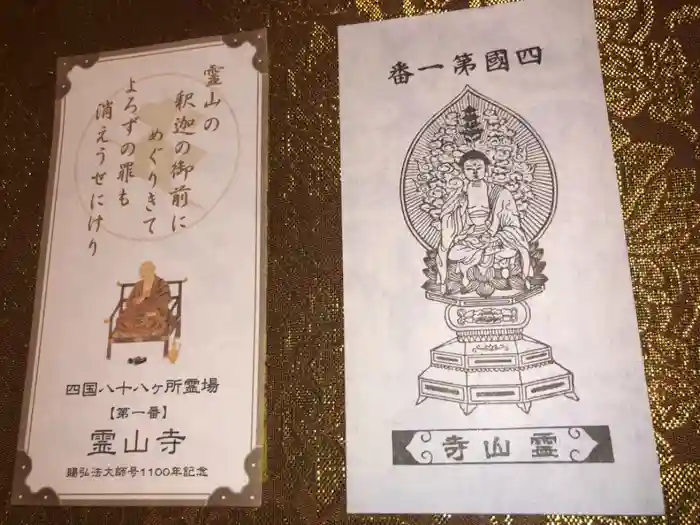 霊山の
釈迦の御前に
めぐりきて
よろずの罪も
消えうせにけり
四国八十八ヶ所霊場
【第一番】
霊山寺
賜弘法大師号1100年記念
番一第國四
寺山霊